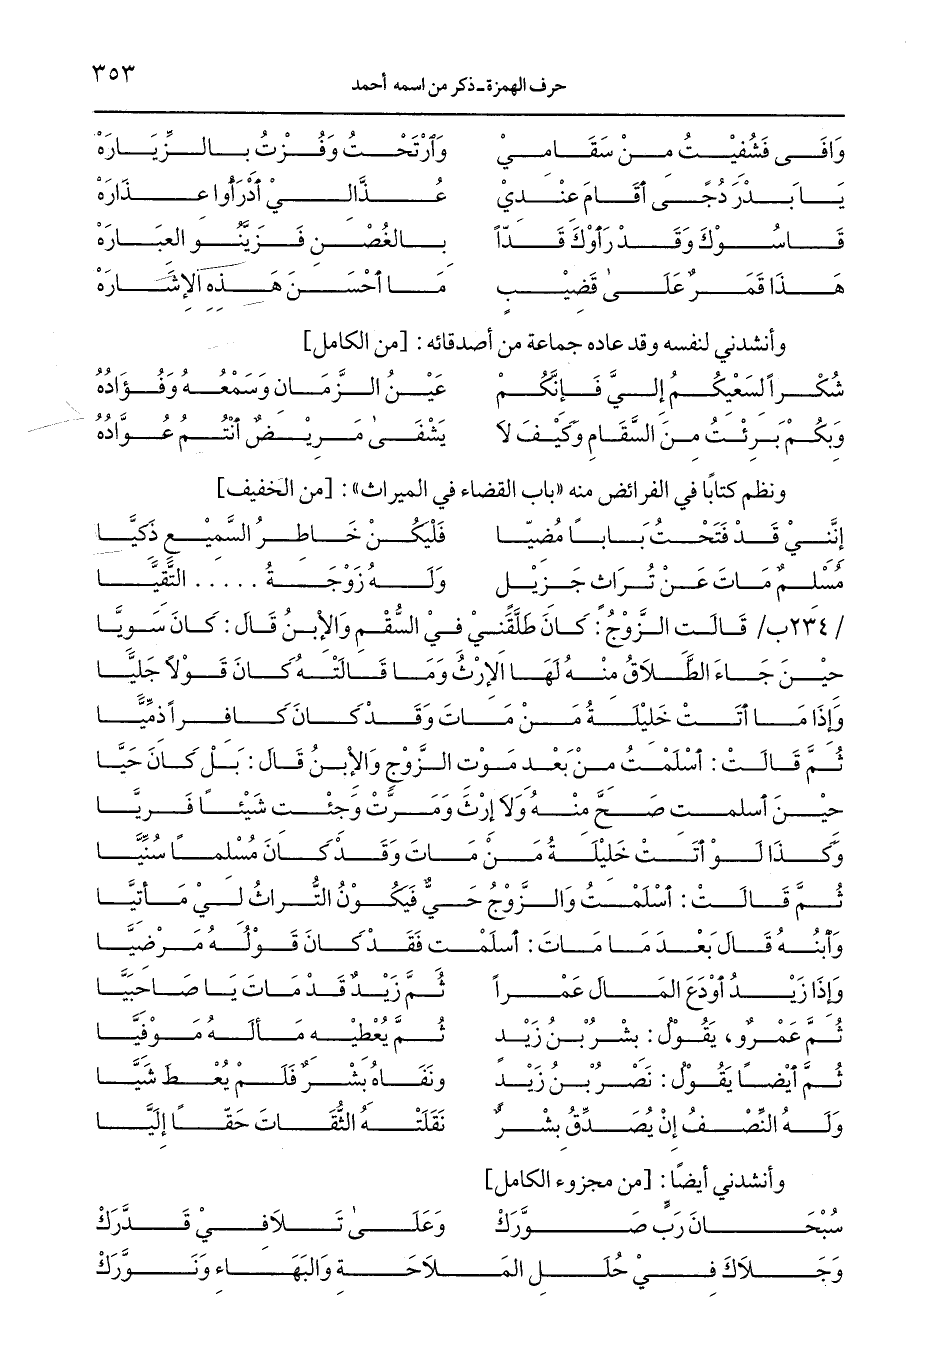 حرف الهمزة - ذكر من اسمه أحمد ٣٥٣
وَافَى فَشُفِيْتُ مِنْ سَقَامِيْ وَارْتَحْتُ وَفُزْتُ بِالزِّيَارَهْ
يَا بَدْرَ دُجًى أَقَامَ عِنْدِيْ عُذَّالِيْ أَدْرَأُوا عِذَارَهْ
قَاسُوْكَ وَقَدْ رَأَوْكَ قَدّاً بِالغُصْنِ فَزَيَّنُو العِبَارَهْ
هَذَا قَمَرٌ عَلَىٰ قَضِيْبٍ مَا أَحْسَنَ هَذِهِ الإِشَارَهْ
وأنشدني لنفسه وقد عاده جماعة من أصدقائه: [من الكامل]
شُكْراً لسَعْيِكُمُ إِليَّ فَإِنَّكُمْ عَيْنُ الزَّمَانِ وَسَمْعُهُ وَفُؤَادُهُ
وَبِكُمْ بَرِئْتُ مِنَ السَّقَامِ وَكَيْفَ لَا يَشْفَىٰ مَرِيْضٌ أَنْتُمُ عُوَّادُهُ
ونظم كتابًا في الفرائض منه «باب القضاء في الميراث»: [من الخفيف]
إِنَّنِيْ قَدْ فَتَحْتُ بَابًا مُضِيّاً فَلْيَكُنْ خَاطِرُ السَّمِيْعِ ذَكِيَّا
مُسْلِمٌ مَاتَ عَنْ تُرَاثٍ جَزِيْلٍ وَلَهُ زَوْجَةُ ..... التَّقِيَّا
/٢٣٤ب/ قَالَتِ الزَّوْجُ: كَانَ طَلَّقَنِي فِي السُّقْمِ وَالاِبْنُ قَالَ: كَانَ سَوِيَّا
حِيْنَ جَاءَ الطَّلَاقُ مِنْهُ لَهَا الإِرْثُ وَمَا قَالَتْهُ كَانَ قَوْلاً جَلِيَّا
وَإِذَا مَا أَتَتْ خَلِيْلَةُ مَنْ مَاتَ وَقَدْ كَانَ كَافِراً ذِمِّيَّا
ثُمَّ قَالَتْ: أَسْلَمْتُ مِنْ بَعْدِ مَوْتِ الزَّوْجِ وَالاِبْنُ قَالَ: بَلْ كَانَ حَيَّا
حِيْنَ أَسلمت صَحَّ مِنْهُ وَلَا إِرْثَ وَمَرَّتْ وَجِئْتِ شَيْئًا فَرِيَّا
وَكَذَا لَوْ أَتَتْ خَلِيْلَةُ مَنْ مَاتَ وَقَدْ كَانَ مُسْلِمًا سُنِّيَّا
ثُمَّ قَالَتْ: أَسْلَمْتُ وَالزَّوْجُ حَيٌّ فَيَكُوْنُ التُّرَاثُ لِيْ مَأْتِيَّا
وَابْنُهُ قَالَ بَعْدَ مَا مَاتَ: أَسلمتِ فَقَدْ كَانَ قَوْلُهُ مَرْضِيَّا
وَإِذَا زَيْدُ أَوْدَعَ المَالَ عَمْراً ثُمَّ زَيْدٌ قَدْ مَاتَ يَا صَاحِبِيَّا
ثُمَّ عَمْرو، يَقُوْلُ: بِشْرُ بْنُ زَيْدٍ ثُمَّ يُعْطِيْهِ مَالَهُ مَوْفِيَّا
ثُمَّ أَيْضًا يَقُوْلُ: نَصْرُ بْنُ زَيْدٍ وَنَفَاهُ بِشْرٌ فَلَمْ يُعْطَ شَيَّا
وَلَهُ النِّصْفُ إِنْ يُصَدِّقُ بِشْرٌ نَقَلَتْهُ الثِّقَاتُ حَقًّا إِلَيَّا
وأنشدني أيضًا: [من مجزوء الكامل]
سُبْحَانَ رَبٍّ صَوَّرَكْ وَعَلَىٰ تَلَافِيْ قَدَّرَكْ
وَجَلَاكَ فِيْ حُلَلِ المَلَاحَةِ وَالبَهَاءِ وَنَوَّرَكْ